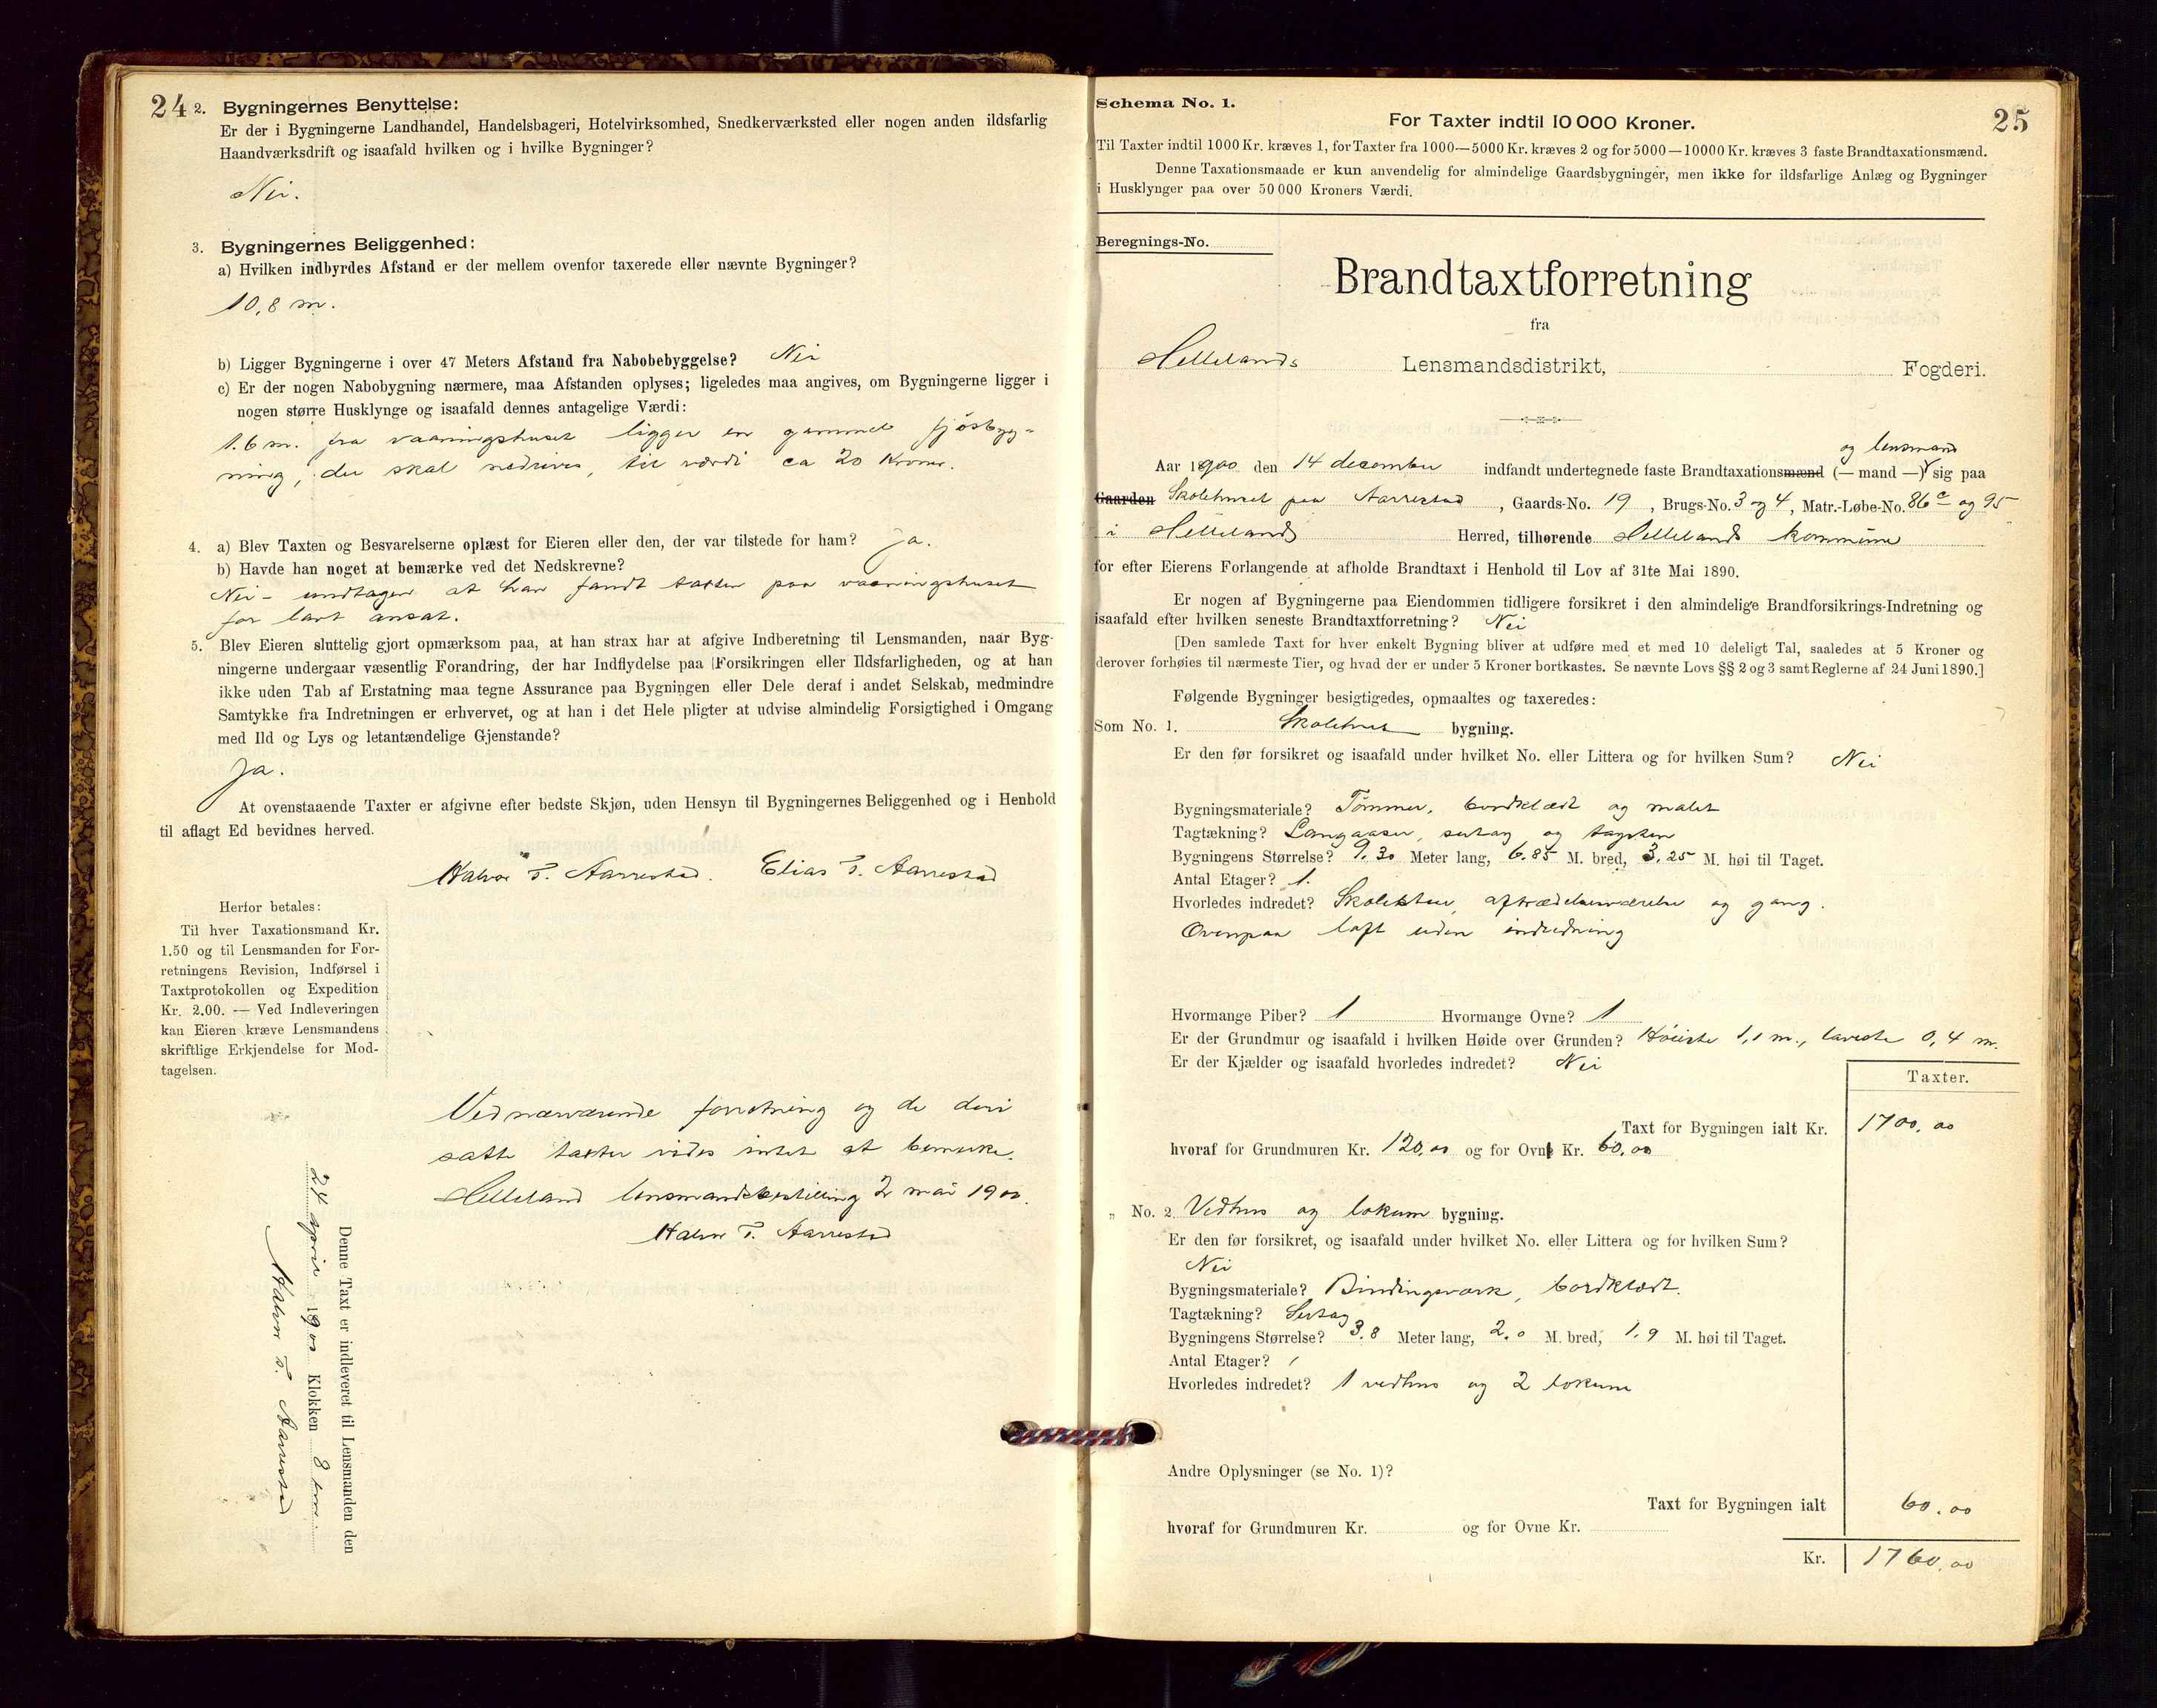 24
2. Bygningernes Benyttelse:
Er der i Bygningerne Landhandel, Handelsbageri, Hotelvirksomhed, Snedkerværksted eller nogen anden ildsfarlig
Haandværksdrift og isaafald hvilken og i hvilke Bygninger?
Nei.
3. Bygningernes Beliggenhed:
a) Hvilken indbyrdes Afstand er der mellem ovenfor taxerede eller nævnte Bygninger?
10,8 m.
b) Ligger Bygningerne i over 47 Meters Afstand fra Nabobebyggelse? Nei
c) Er der nogen Nabobygning nærmere, maa Afstanden oplyses; ligeledes maa angives, om Bygningerne ligger i
nogen større Husklynge og isaafald dennes antagelige Værdi:
1.6 m. fra vaaningshuset ligger en gammel fjøsbyg-
ning, der skal nedrives, til værdi ca 20 Kroner.
4. a) Blev Taxten og Besvarelserne oplæst for Eieren eller den, der var tilstede for ham? Ja.
b) Havde han noget at bemærke ved det Nedskrevne?
Nei - undtagen at han fandt taxten paa vaaningshuset
for lavt ansat.
5. Blev Eieren sluttelig gjort opmærksom paa, at han strax har at afgive Indberetning til Lensmanden, naar Byg-
ningerne undergaar væsentlig Forandring, der har Indflydelse paa Forsikringen eller Ildsfarligheden, og at han
ikke uden Tab af Erstatning maa tegne Assurance paa Bygningen eller Dele deraf i andet Selskab, medmindre
Samtykke fra Indretningen er erhvervet, og at han i det Hele pligter at udvise almindelig Forsigtighed i Omgang
med Ild og Lys og letantændelige Gjenstande?
Ja.
At ovenstaaende Taxter er afgivne efter bedste Skjøn, uden Hensyn til Bygningernes Beliggenhed og i Henhold
til aflagt Ed bevidnes herved.
Halvor T. Aarrestad. Elias T. Aarrestad
Herfor betales:
Til hver Taxationsmand Kr.
1.50 og til Lensmanden for For-
retningens Revision, Indførsel i
Taxtprotokollen og Expedition
Kr. 2.00. — Ved Indleveringen
kan Eieren kræve Lensmandens
skriftlige Erkjendelse for Mod-
tagelsen.
Ved nærværende forretning og de deri
satte taxter vides intet at bemerke.
Helleland lensmandsbestilling 2 mai 1900.
Halvor T. Aarrestad
Denne Taxt er indleveret til Lensmanden den
24 april 1900 Klokken 8
Halvor T. Aarrestad
25
Schema No. 1.
For Taxter indtil 10 000 Kroner.
Til Taxter indtil 1000 Kr. kræves 1, for Taxter fra 1000—5000 Kr. kræves 2 og for 5000—10000 Kr. kræves 3 faste Brandtaxationsmænd.
Denne Taxationsmaade er kun anvendelig for almindelige Gaardsbygninger, men ikke for ildsfarlige Anlæg og Bygninger
i Husklynger paa over 50 000 Kroners Værdi.
Beregnings-No.
Brandtaxtforretning
fra
Hellelands Lensmandsdistrikt, Fogderi.
og lensmand
Aar 1900 den 14 december indfandt undertegnede faste Brandtaxationsmænd (— mand —) sig paa
Gaarden Skolehuset paa Aarrestad, Gaards-No. 19, Brugs-No. 3 og 4, Matr.-Løbe-No. 86c og 95
i Hellelands Herred, tilhørende Hellelands kommune
for efter Eierens Forlangende at afholde Brandtaxt i Henhold til Lov af 31te Mai 1890.
Er nogen af Bygningerne paa Eiendommen tidligere forsikret i den almindelige Brandforsikrings-Indretning og
isaafald efter hvilken seneste Brandtaxtforretning? Nei
[Den samlede Taxt for hver enkelt Bygning bliver at udføre med et med 10 deleligt Tal, saaledes at 5 Kroner og
derover forhøies til nærmeste Tier, og hvad der er under 5 Kroner bortkastes. Se nævnte Lovs §§ 2 og 3 samt Reglerne af 24 Juni 1890.]
Følgende Bygninger besigtigedes, opmaaltes og taxeredes:
Som No. 1. Skolehus bygning.
Er den før forsikret og isaafald under hvilket No. eller Littera og for hvilken Sum? Nei
Bygningsmateriale? Tømmer, bordklædt og malet
Tagtækning? Langaaser, sutag og tagsten
Bygningens Størrelse? 9.30 Meter lang, 6.85 M. bred, 3.25 M. høi til Taget.
Antal Etager? 1.
Hvorledes indredet? Skolestue, aftrædelsesværelse og gang.
Ovenpaa loft uden indredning
Hvormange Piber? 1 Hvormange Ovne? 1
Er der Grundmur og isaafald i hvilken Høide over Grunden? Høieste 1,1 m., laveste 0,4 m.
Er der Kjælder og isaafald hvorledes indredet? Nei
Taxter.
Taxt for Bygningen ialt Kr. 1700,00
hvoraf for Grundmuren Kr. 120,00 og for Ovn Kr. 60,00
„ No. 2. Vedhus og lokum bygning.
Er den før forsikret, og isaafald under hvilket No. eller Littera og for hvilken Sum?
Nei
Bygningsmateriale? Bindingsværk, bordklædt.
Tagtækning? Sutag
Bygningens Størrelse? 3.8 Meter lang, 2.0 M. bred, 1.9 M. høi til Taget.
Antal Etager? 1
Hvorledes indredet? 1 vedhus og 2 lokum
Andre Oplysninger (se No. 1)?
Taxt for Bygningen ialt 60.00
hvoraf for Grundmuren Kr. og for Ovne Kr.
Kr. 1760,00